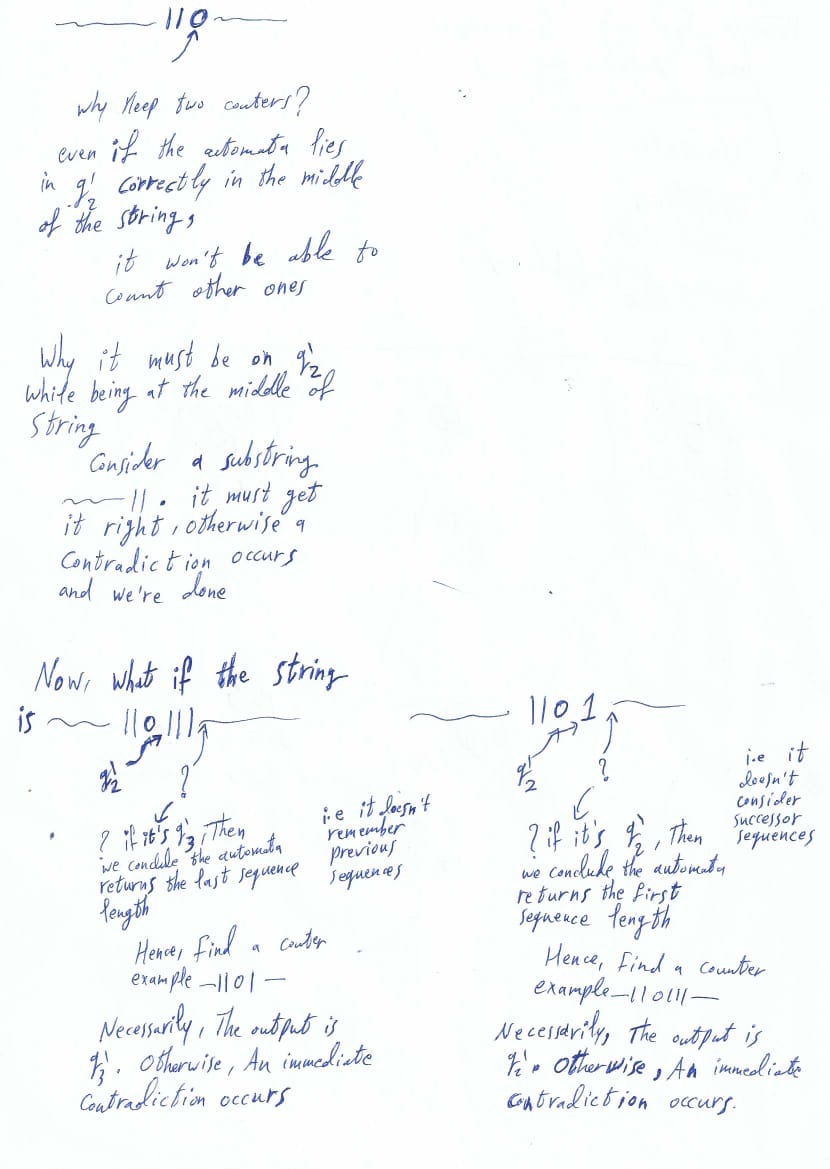 110
why Keep two couters?
even if the automata lies
in q'2 correctly in the middle
of the string,
it won't be able to
count other ones
Why it must be on q'2
while being at the middle of
string
Consider a substring
11. it must get
it right, otherwise a
Contradiction occurs
and we're done
Now, what if the string
is 110111
q'2 ?
? if it's q'3, Then
we conclude the automata
returns the last sequence
length
i.e it doesn't
remember
previous
sequences
Hence, find a couter
example -1101-
Necessarily, The output is
q'3. Otherwise, An immediate
Contradiction occurs
1101
q'2 ?
? if it's q'2, Then
we conclude the automata
returns the first
sequence length
i.e it
doesn't
consider
successor
sequences
Hence, Find a counter
example-110111-
Necessarily, The output is
q'2. Otherwise, An immediate
contradiction occurs.